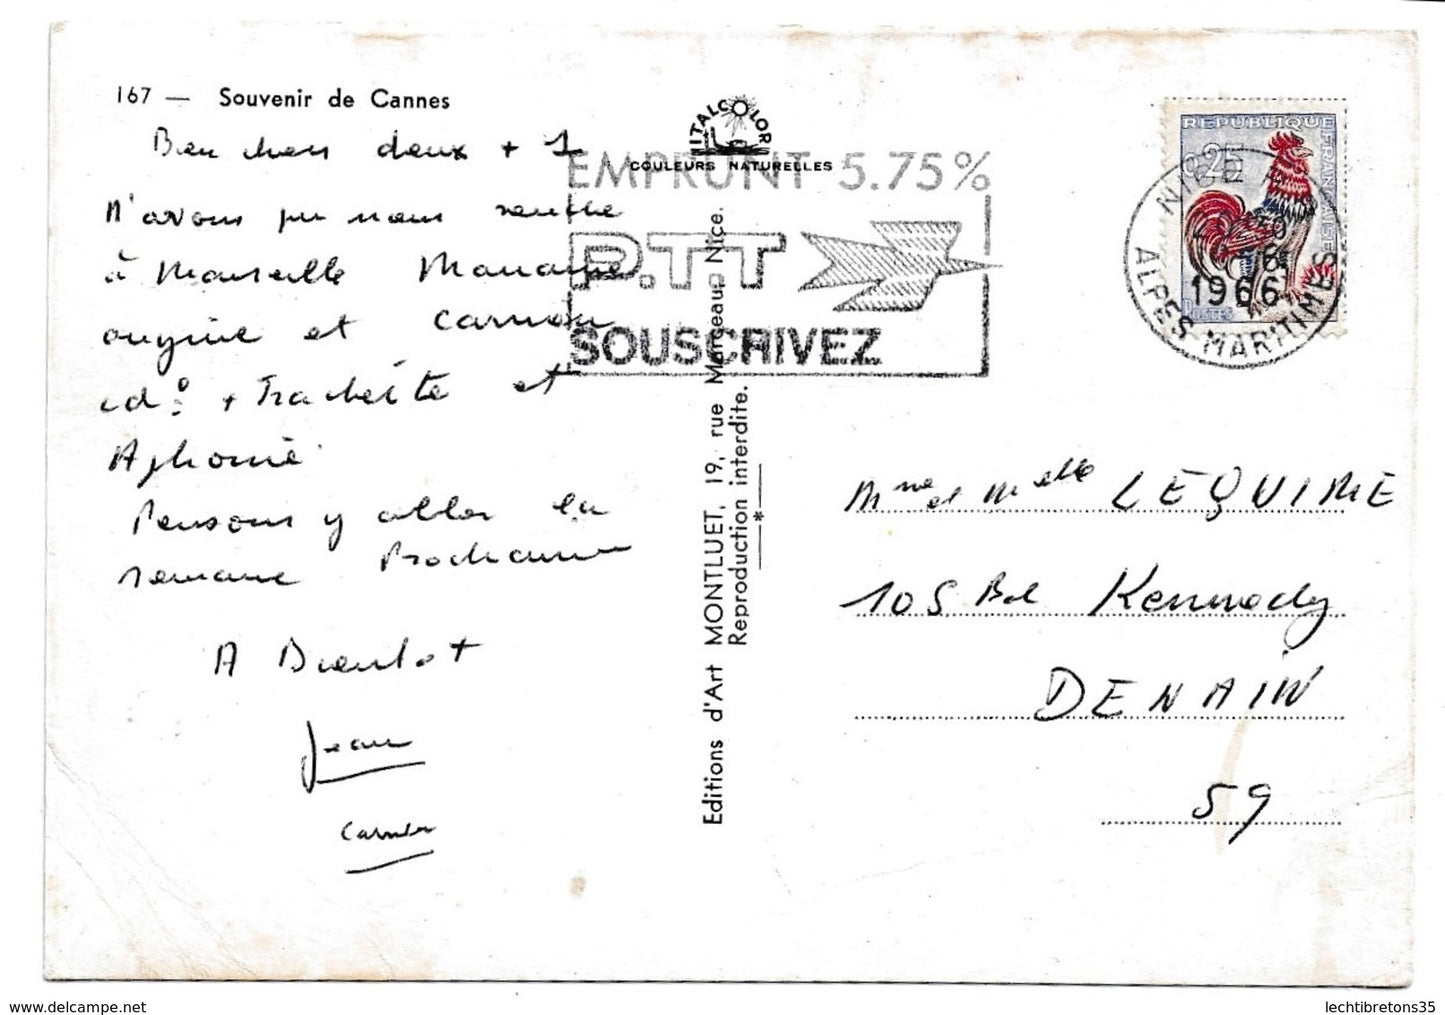 167 — Souvenir de Cannes
Bien chers deux + 1
N'avons pu nous rendre
à Marseille Marianne
angine et Carmen
id° + Trachéite et
Aphonie.
Pensons y aller la
semaine Prochaine
A Bientot
Jean
ITALCOLOR
COULEURS NATURELLES
EMPRUNT 5.75%
P.T.T
SOUSCRIVEZ
Editions d'Art MONTLUET, 19, rue Marceau, Nice.
Reproduction interdite.
*
REPUBLIQUE FRANÇAISE
0,25
POSTES
NICE
1966
ALPES-MARITIMES
Mme et Melle LEÇUIME
105 Bd Kennedy
DENAIN
59
www.delcampe.net
lechtibretons35